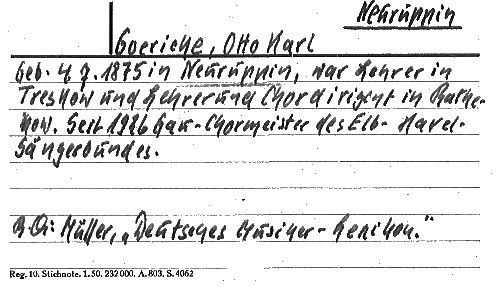 Neuruppin
Goericke, Otto Karl
Geb. 4. 7. 1875 in Neuruppin, war Lehrer in
Treskow und Lehrer und Chordirigent in Rathe-
now. Seit 1926 Gau-Chormeister des Elb-Havel-
Sängerbundes.
Müller, „Deutsches Musiker-Lexikon."
Reg. 10. Stichnote. 1.50. 232000. A. 803. S. 4062